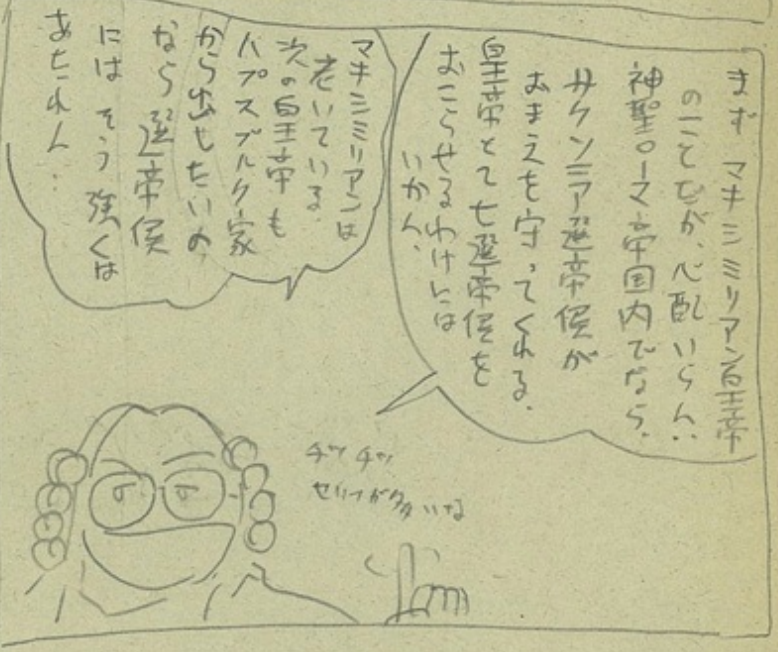 まず マキシミリアン皇帝
のことだが、心配いらん、
神聖ローマ帝国内でなら、
サクソニア選帝侯が
おまえを守ってくれる、
皇帝とて七選帝侯を
おこらせるわけには
いかん、
マキシミリアンは
老いている
次の皇帝も
ハプスブルク家
から出したいの
なら 選帝侯
には そう 強くは
あたれん…
チッチッ
セリフが多いな